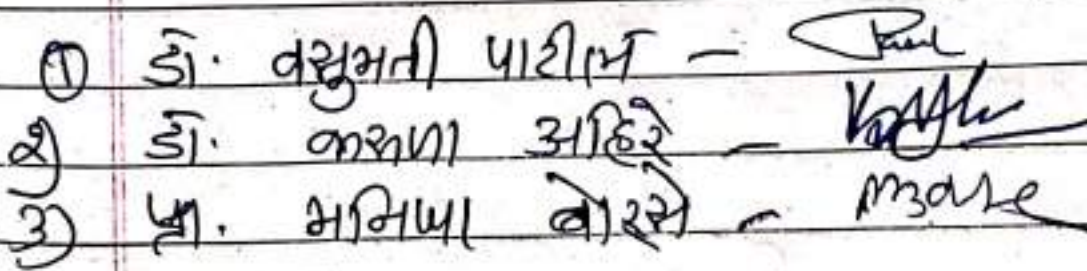 ① डॉ. वसुमती पाटील -
२) डॉ. करुणा अहिरे -
३) प्रा. मनिषा बोरसे -